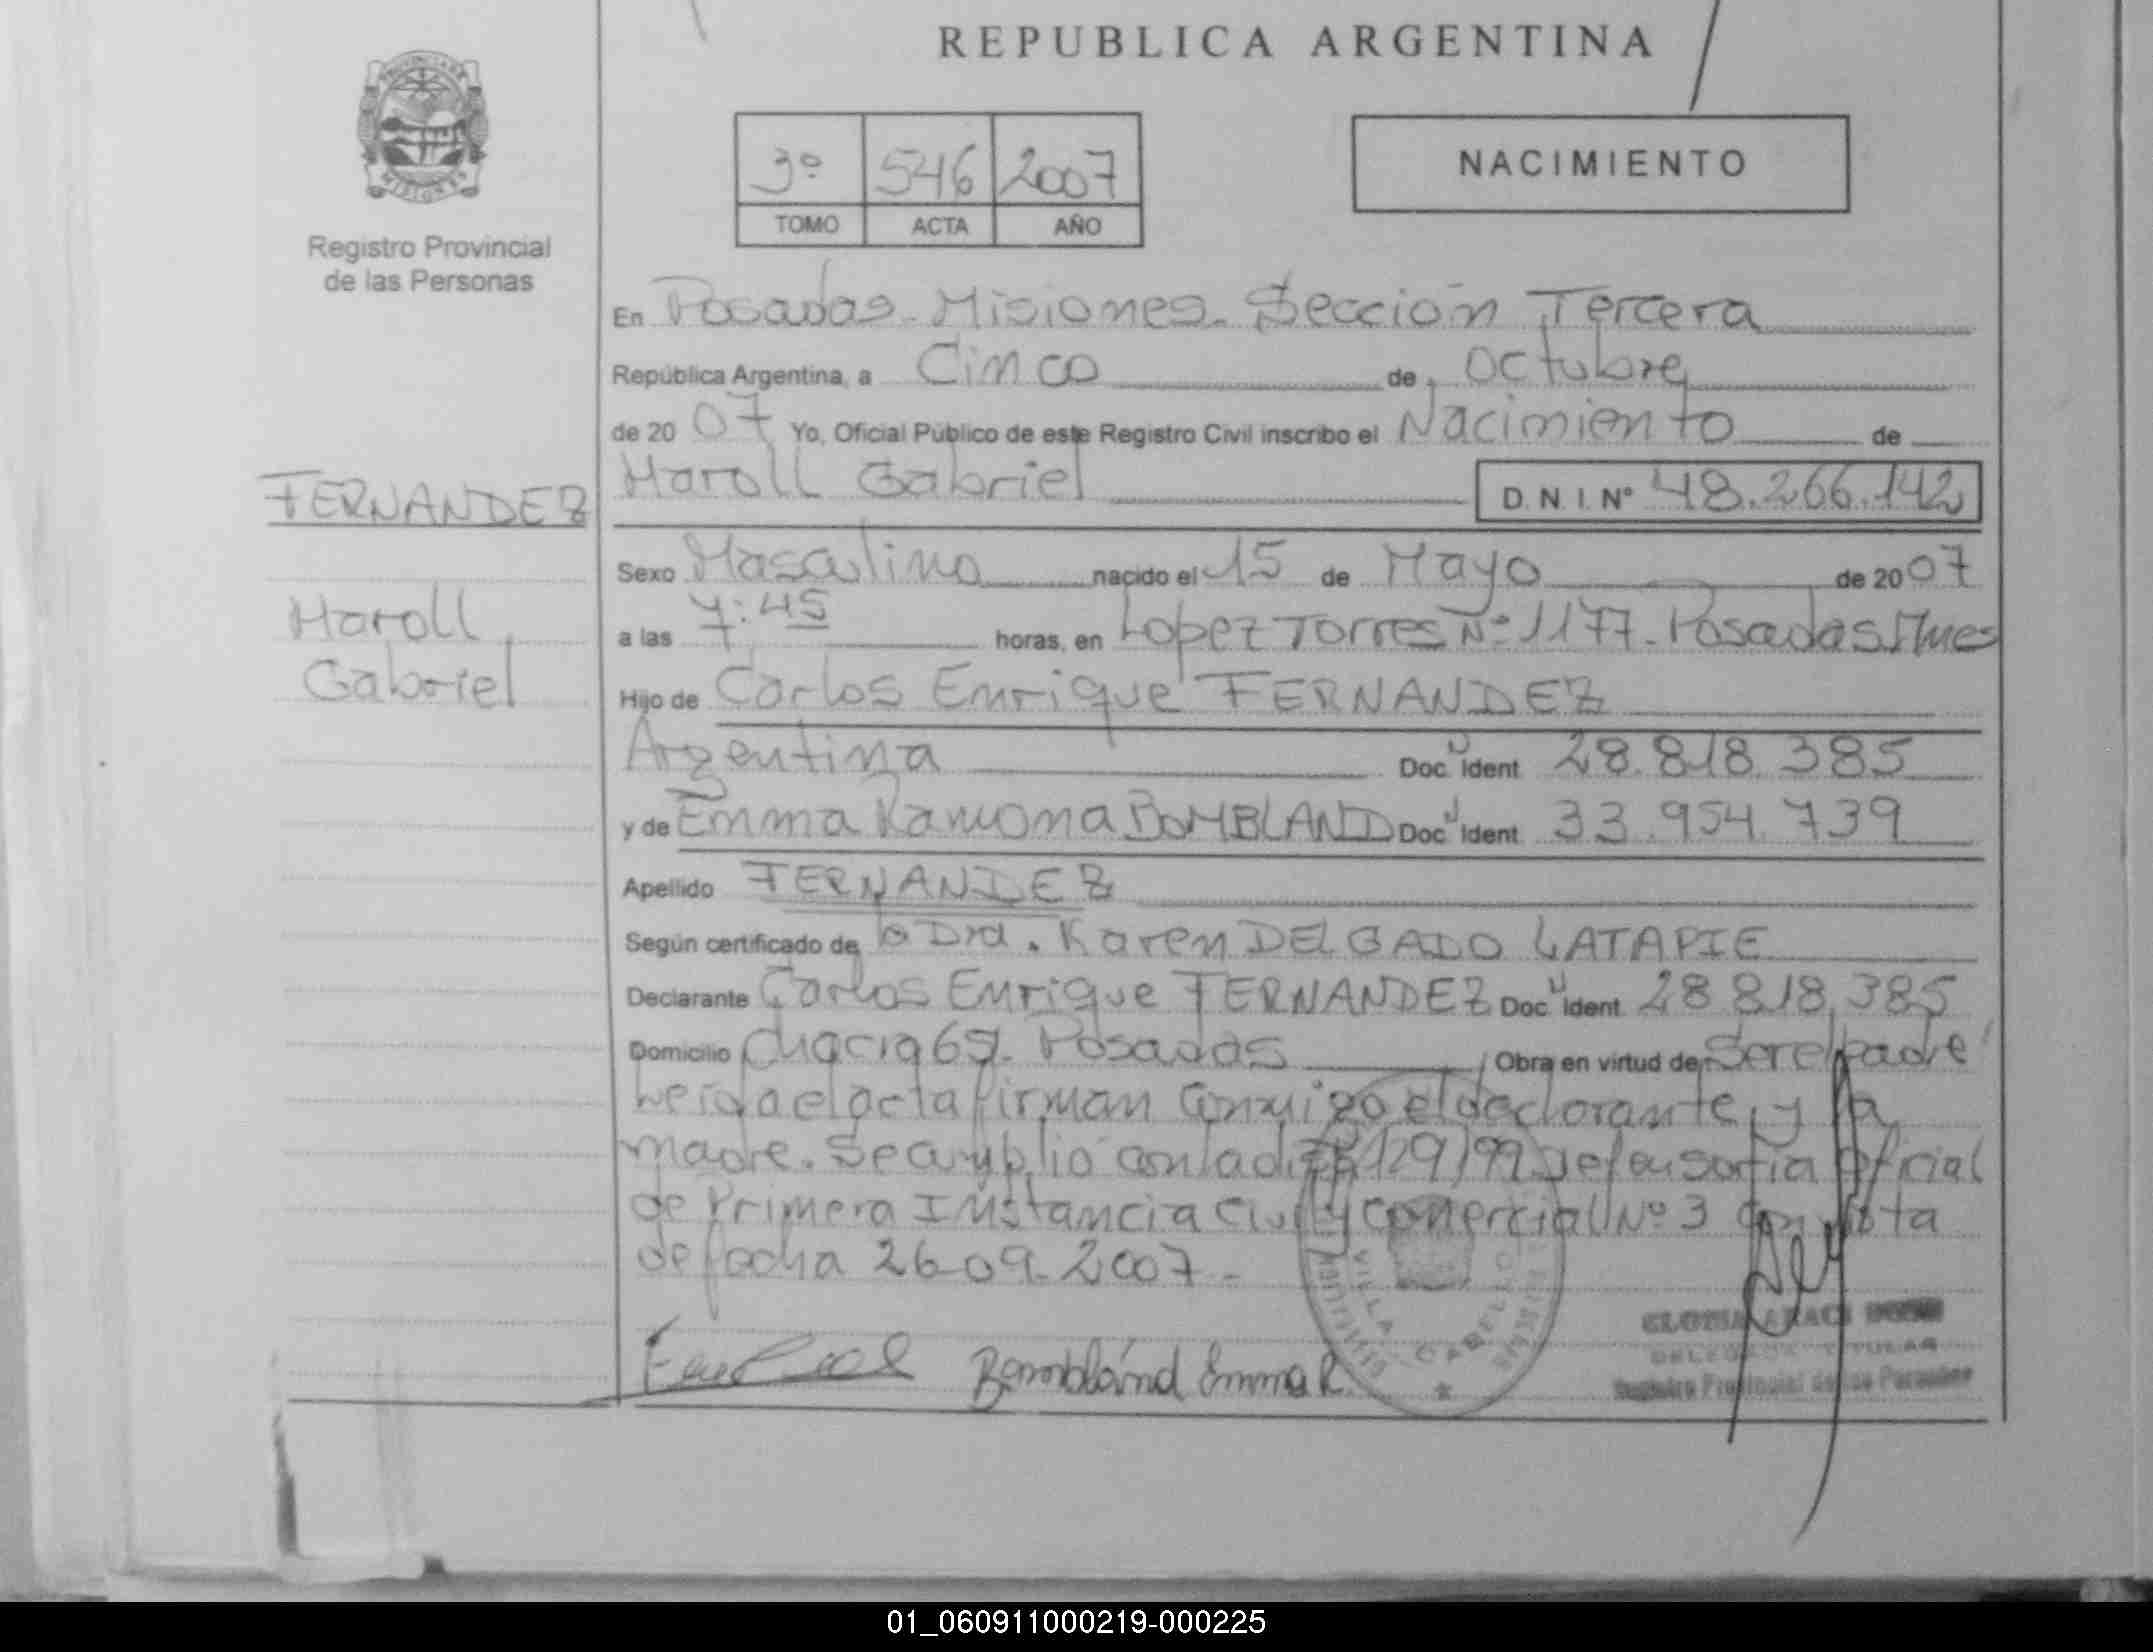 REPUBLICA ARGENTINA
PROVINCIA DE
MISIONES
Registro Provincial
de las Personas
3º 546 2007
TOMO ACTA AÑO
NACIMIENTO
En Posadas - Misiones - Sección Tercera
República Argentina, a Cinco de Octubre
de 2007 Yo, Oficial Público de este Registro Civil inscribo el Nacimiento de
Haroll Gabriel D.N.I. Nº 48.266.142
FERNANDEZ
Haroll
Gabriel
Sexo Masculino nacido el 15 de Mayo de 2007
a las 7:45 horas, en Lopez Torres Nº 1177 - Posadas Mnes
Hijo de Carlos Enrique FERNANDEZ
Argentina Doc. Ident 28.818.385
y de Emma Ramona BOMBLAND Doc. Ident 33.954.739
Apellido FERNANDEZ
Según certificado de la Dra. Karen DELGADO LATAPIE
Declarante Carlos Enrique FERNANDEZ Doc. Ident 28 818.385
Domicilio Chacra 69 - Posadas Obra en virtud de Ser el padre
Leída el acta firman Conmigo el declarante, y la
madre. Se amplió con la 129/99 Defensoría Oficial
de Primera Instancia Civil y Comercial Nº 3 con vista
de fecha 26-09-2007 -
Bombland Emma R.
VILLA CABELLO
DELEGADA TITULAR
Registro Provincial de las Personas
01_060911000219-000225